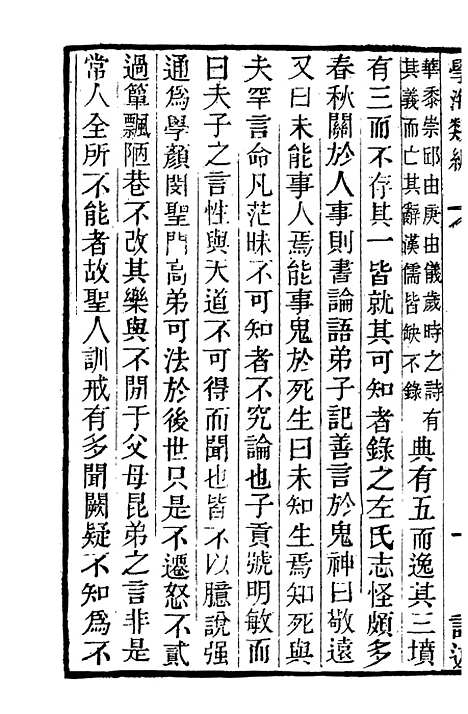 學海類編
華黍崇邱由庚由儀歲時之詩有
其義而亡其辭漢儒皆缺不錄
典有五而逸其三墳
有三而不存其一皆就其可知者錄之左氏志怪頗多
春秋關於人事則書論語弟子記善言於鬼神曰敬遠
又曰未能事人焉能事鬼於死生曰未知生焉知死與
夫罕言命凡茫昧不可知者不究論也子貢號明敏而
曰夫子之言性與天道不可得而聞也皆不以臆說强
通爲學顏閔聖門高弟可法於後世只是不遷怒不貳
過簞瓢陋巷不改其樂與不閒于父母昆弟之言非是
常人全所不能者故聖人訓戒有多聞闕疑不知爲不